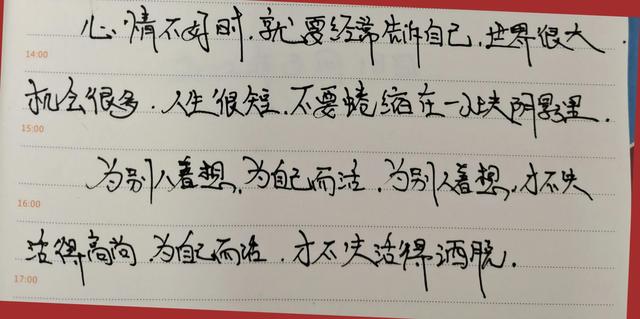 心情不好时,就要经常告诉自己,世界很大
14:00
机会很多.人生很短.不要蜷缩在一小块阴影里.
15:00
为别人着想,为自己而活,为别人着想,才不失
16:00
活得高尚,为自己而活,才不失活得洒脱.
17:00